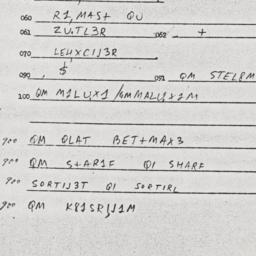 060 R1,MAST QU
061 ZU.TL3R 062 +
070 LEHXCIJ3R
090 , $ 091 QM STELPM
100 QM M1LUX1/GMMALUX1M
900 GM QLAT BET+MAX3
900 QM S+AR1F Q1 SHARF
900 SORTIJ3T Q1 SORTIRL
900 QM K81SRJJ1M